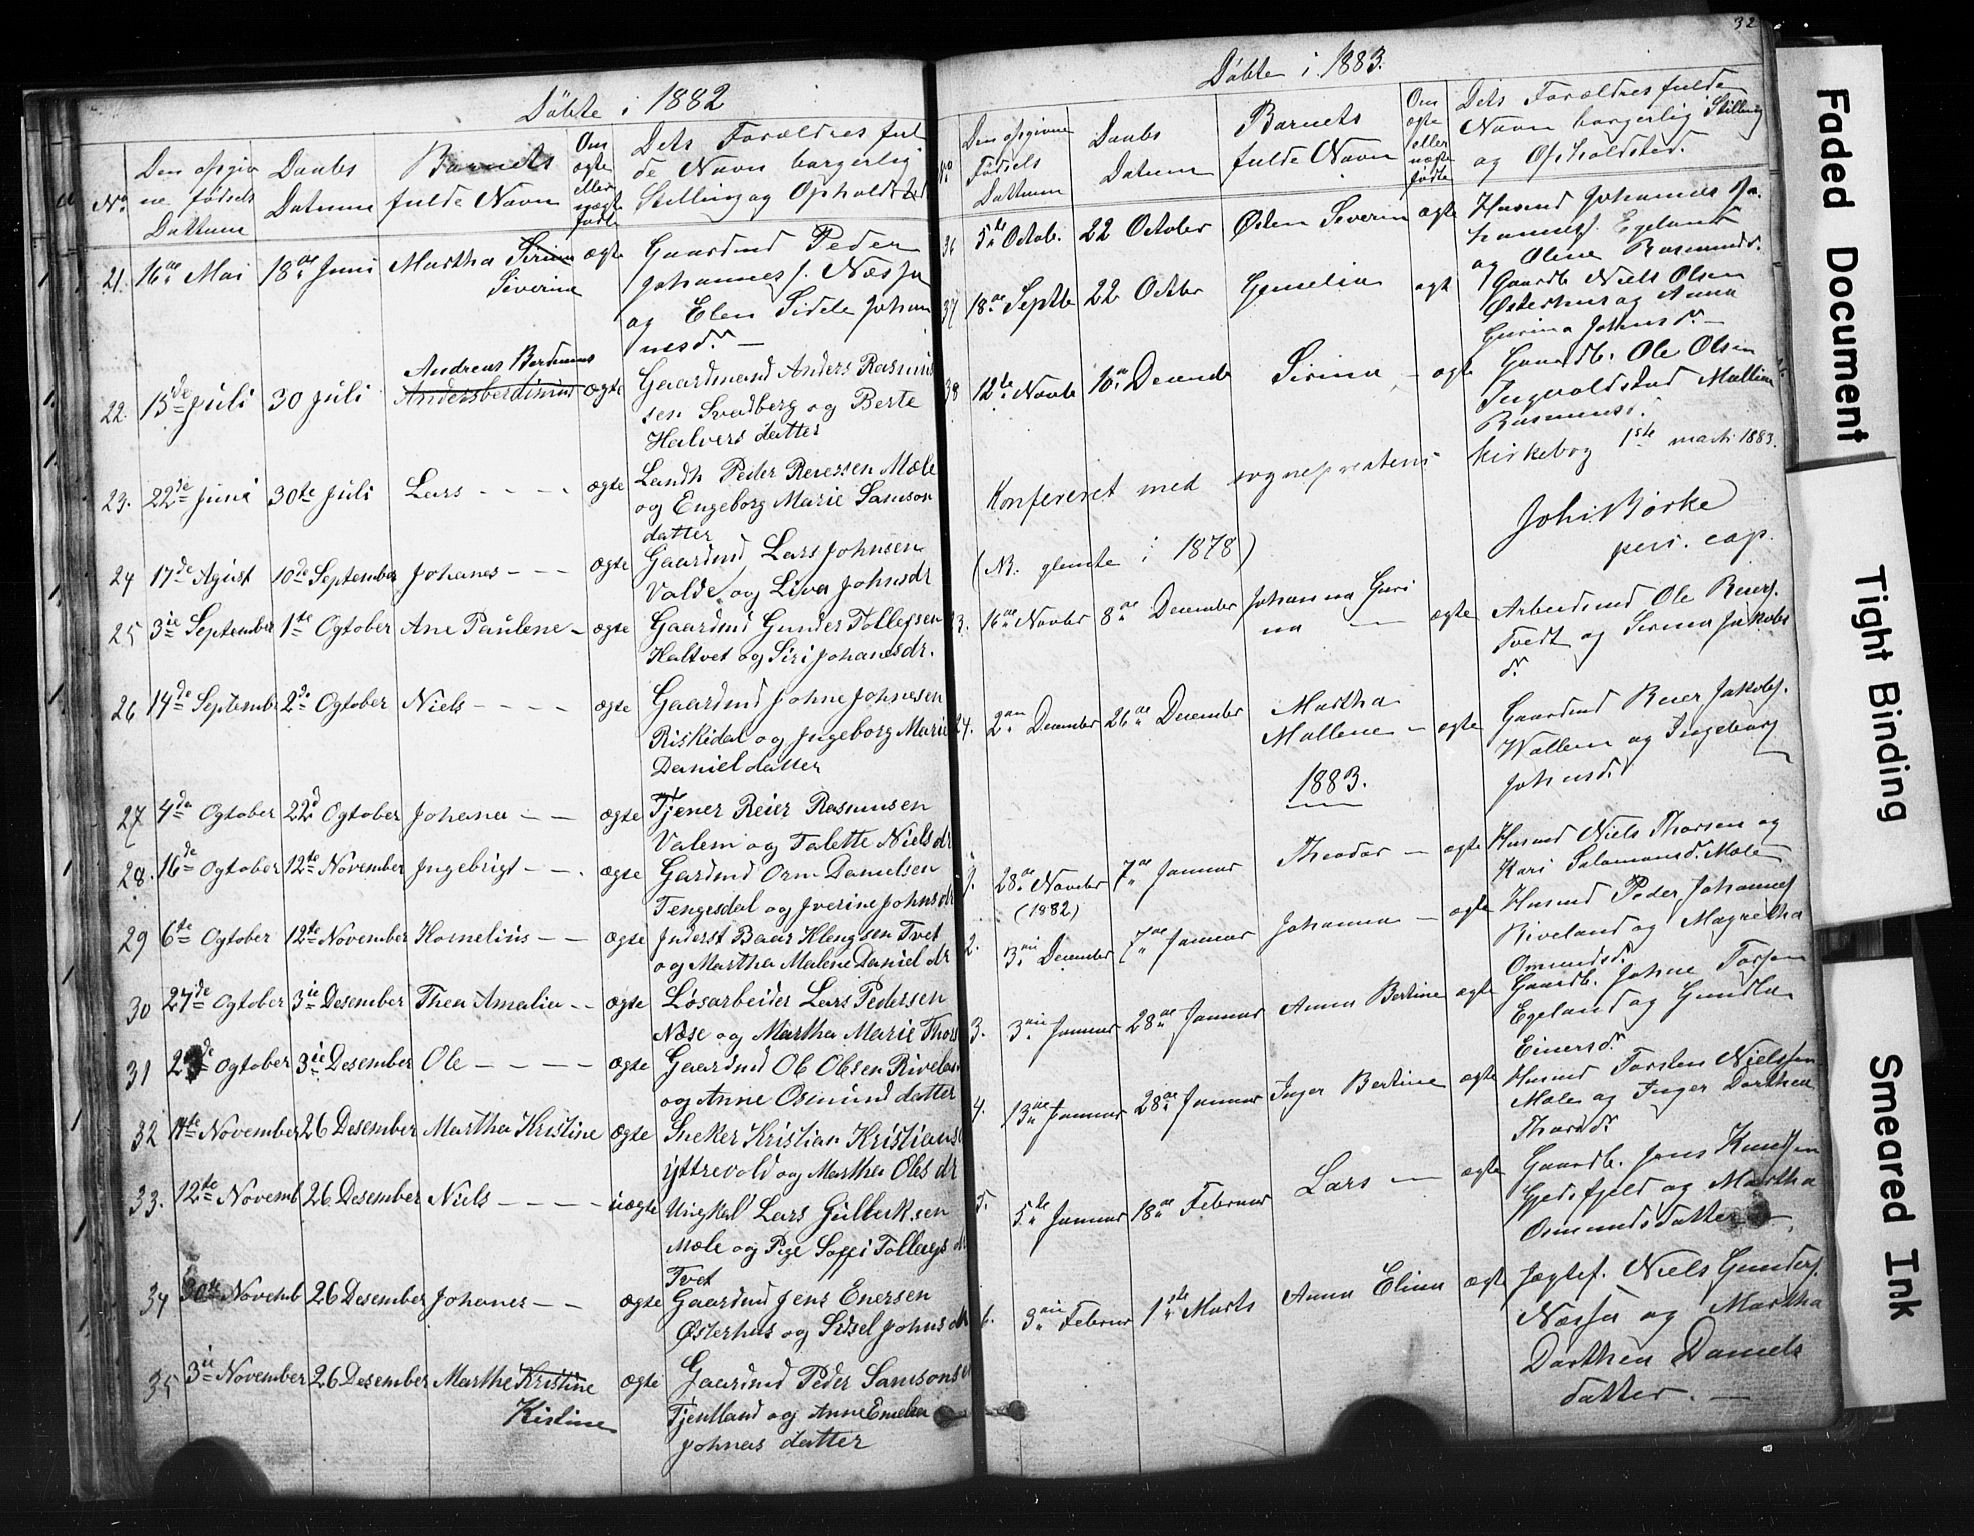 Döbte i 1882
No
Den opgiv
ne födsels
Dattum
Daabs
Datum
Barnets
fulde Navn
Om
ægte
eller
uægte
født
Dets Forældres ful
de Navn borgerlig
Stilling og Opholdsted
21. 16de Mai 18de Juni Martha Sirina ægte Gaardmd Peder
Severine Johannes s. Næssa
og Elen Sidele Johan
nesdr. —
Andreas Berdinius
22. 15de Juli 30 Juli Andersberdinius ægte Gaardmand Anders Rasmus
sen Svadberg og Berte
Halvers datter
23. 22de Juni 30te Juli Lars - - - - ægte Landh Peder Reiersen Mæle
og Engeborg Marie Samson
datter
24 17de Agust 10de September Johanes - - - ægte Gaardmd Lars Johnsen
Valde og Liva Johnsdr
25 3ie September 1te Ogtober Ane Paulene - ægte Gaardmd Gunder Tollefsen
Haltvet og Siri Johanesdr.
26 14de September 2de Ogtober Niels - - - - ægte Gaardmd Johne Johnesen
Riskidal og Ingeborg Marie
Daniel datter
27 4de Ogtober 22d Ogtober Johana - - ægte Tjener Reier Rasmusen
Valem og Talette Niels dr
28. 16de Ogtober 12te November Ingebrigt - - ægte Gardmd Orm Danielsen
Tengesdal og Iverine Johns dr
29 6te Ogtober 12te November Kornelius - - ægte Inderst Baar Klengsen Tvet
og Martha Malene Daniel dr
30 27de Ogtober 3ie Desember Thea Amalia - - ægte Løsarbeider Lars Pedersen
Næse og Martha Marie Thors
31 Ogtober 3ie Desember Ole - - - - ægte Gaardmd Ole Olsen Rivelan
og Anne Osmund datter
32 11te November 26 Desember Martha Kristine ægte Sneker Kristian Kristians
yttrevold og Martha Oles dr
33. 12te Novemb 26 Desember Niels - - - - uægte Ungkal Lars Gulleiksen
Mæle og Pige Soffi Tollevgs dr
Tvet
34 30te Novemb 26 Desember Johanes - - ægte Gaardmd Jens Enersen
Østerhus og Sidsel Johns dr
35 3ie November 26 Desember Marthe Kristine ægte Gaardmd Peder Samsonsen
Kistine Tjentland og Anne Emelia
Johnas datter
32
Døbte i 1883.
No
Den opgivne
Fødsels
Dattum
Daabs
Datum
Barnets
fulde Navn
Om
ægte
eller
uægte
fødte
Dets Forældres fulde
Navn borgerlig Stilling
og Opholdsted.
36 5te Octob. 22 October Østen Severin ægte Husmd Johannes Jo
hannes s. Egeland
og Olene Rasmusdr.
37 18de Septbr 22 Octbr Gemelia ægte Gaardb. Niels Olsen
Østerhus og Anna
Gurina Johnsdr. —
38 12te Novbr 10de Decembr Sirina — ægte Gaardb. Ole Olsen
Ingvaldstad Mallina
Rasmusd.
Konfereret med sognepræstens kirkebog 1ste marts 1883.
Joh. Børke
pers. cap.
(N. glemte i 1878)
23. 16de Novbr 8de December Johanna Guri
na — ægte Arbeidsmd Ole Reiers.
Tvedt og Serina Jakobs
dr
24. 2den December 26de December Martha
Mallene — ægte Gaardmd Reier Jakobs.
Wallem og Ingeborg
Johnsdr.
1883.
1. 28de Novbr 7de Januar Theodor — ægte Husmd Niels Thorsen og
(1882) Kari Salamonsdr. Mæle
2. 3die December 7de Januar Johanna — ægte Husmd Peder Johannes
Riveland og Magretha
Omundsdr.
3. 3die Januar 28de Januar Anna Bertine ægte Gaardb. Johne Torsen
Egeland og Gundla
Einersdr
4. 13de Januar 28de Januar Inger Bertine ægte Husmd Torsten Nielssen
Mæle og Inger Dorthea
Thorsdr
5. 5te Januar 18de Februar Lars — ægte Gaardb. Jens Knudsen
Gjedsfjeld og Martha
Osmundsdatter —.
6. 3die Februar 1ste Marts Anna Elina ægte Jægtef. Niels Gunders.
Næssa og Martha
Dorthea Daniels
datter. —
Faded Document
Tight Binding
Smeared Ink